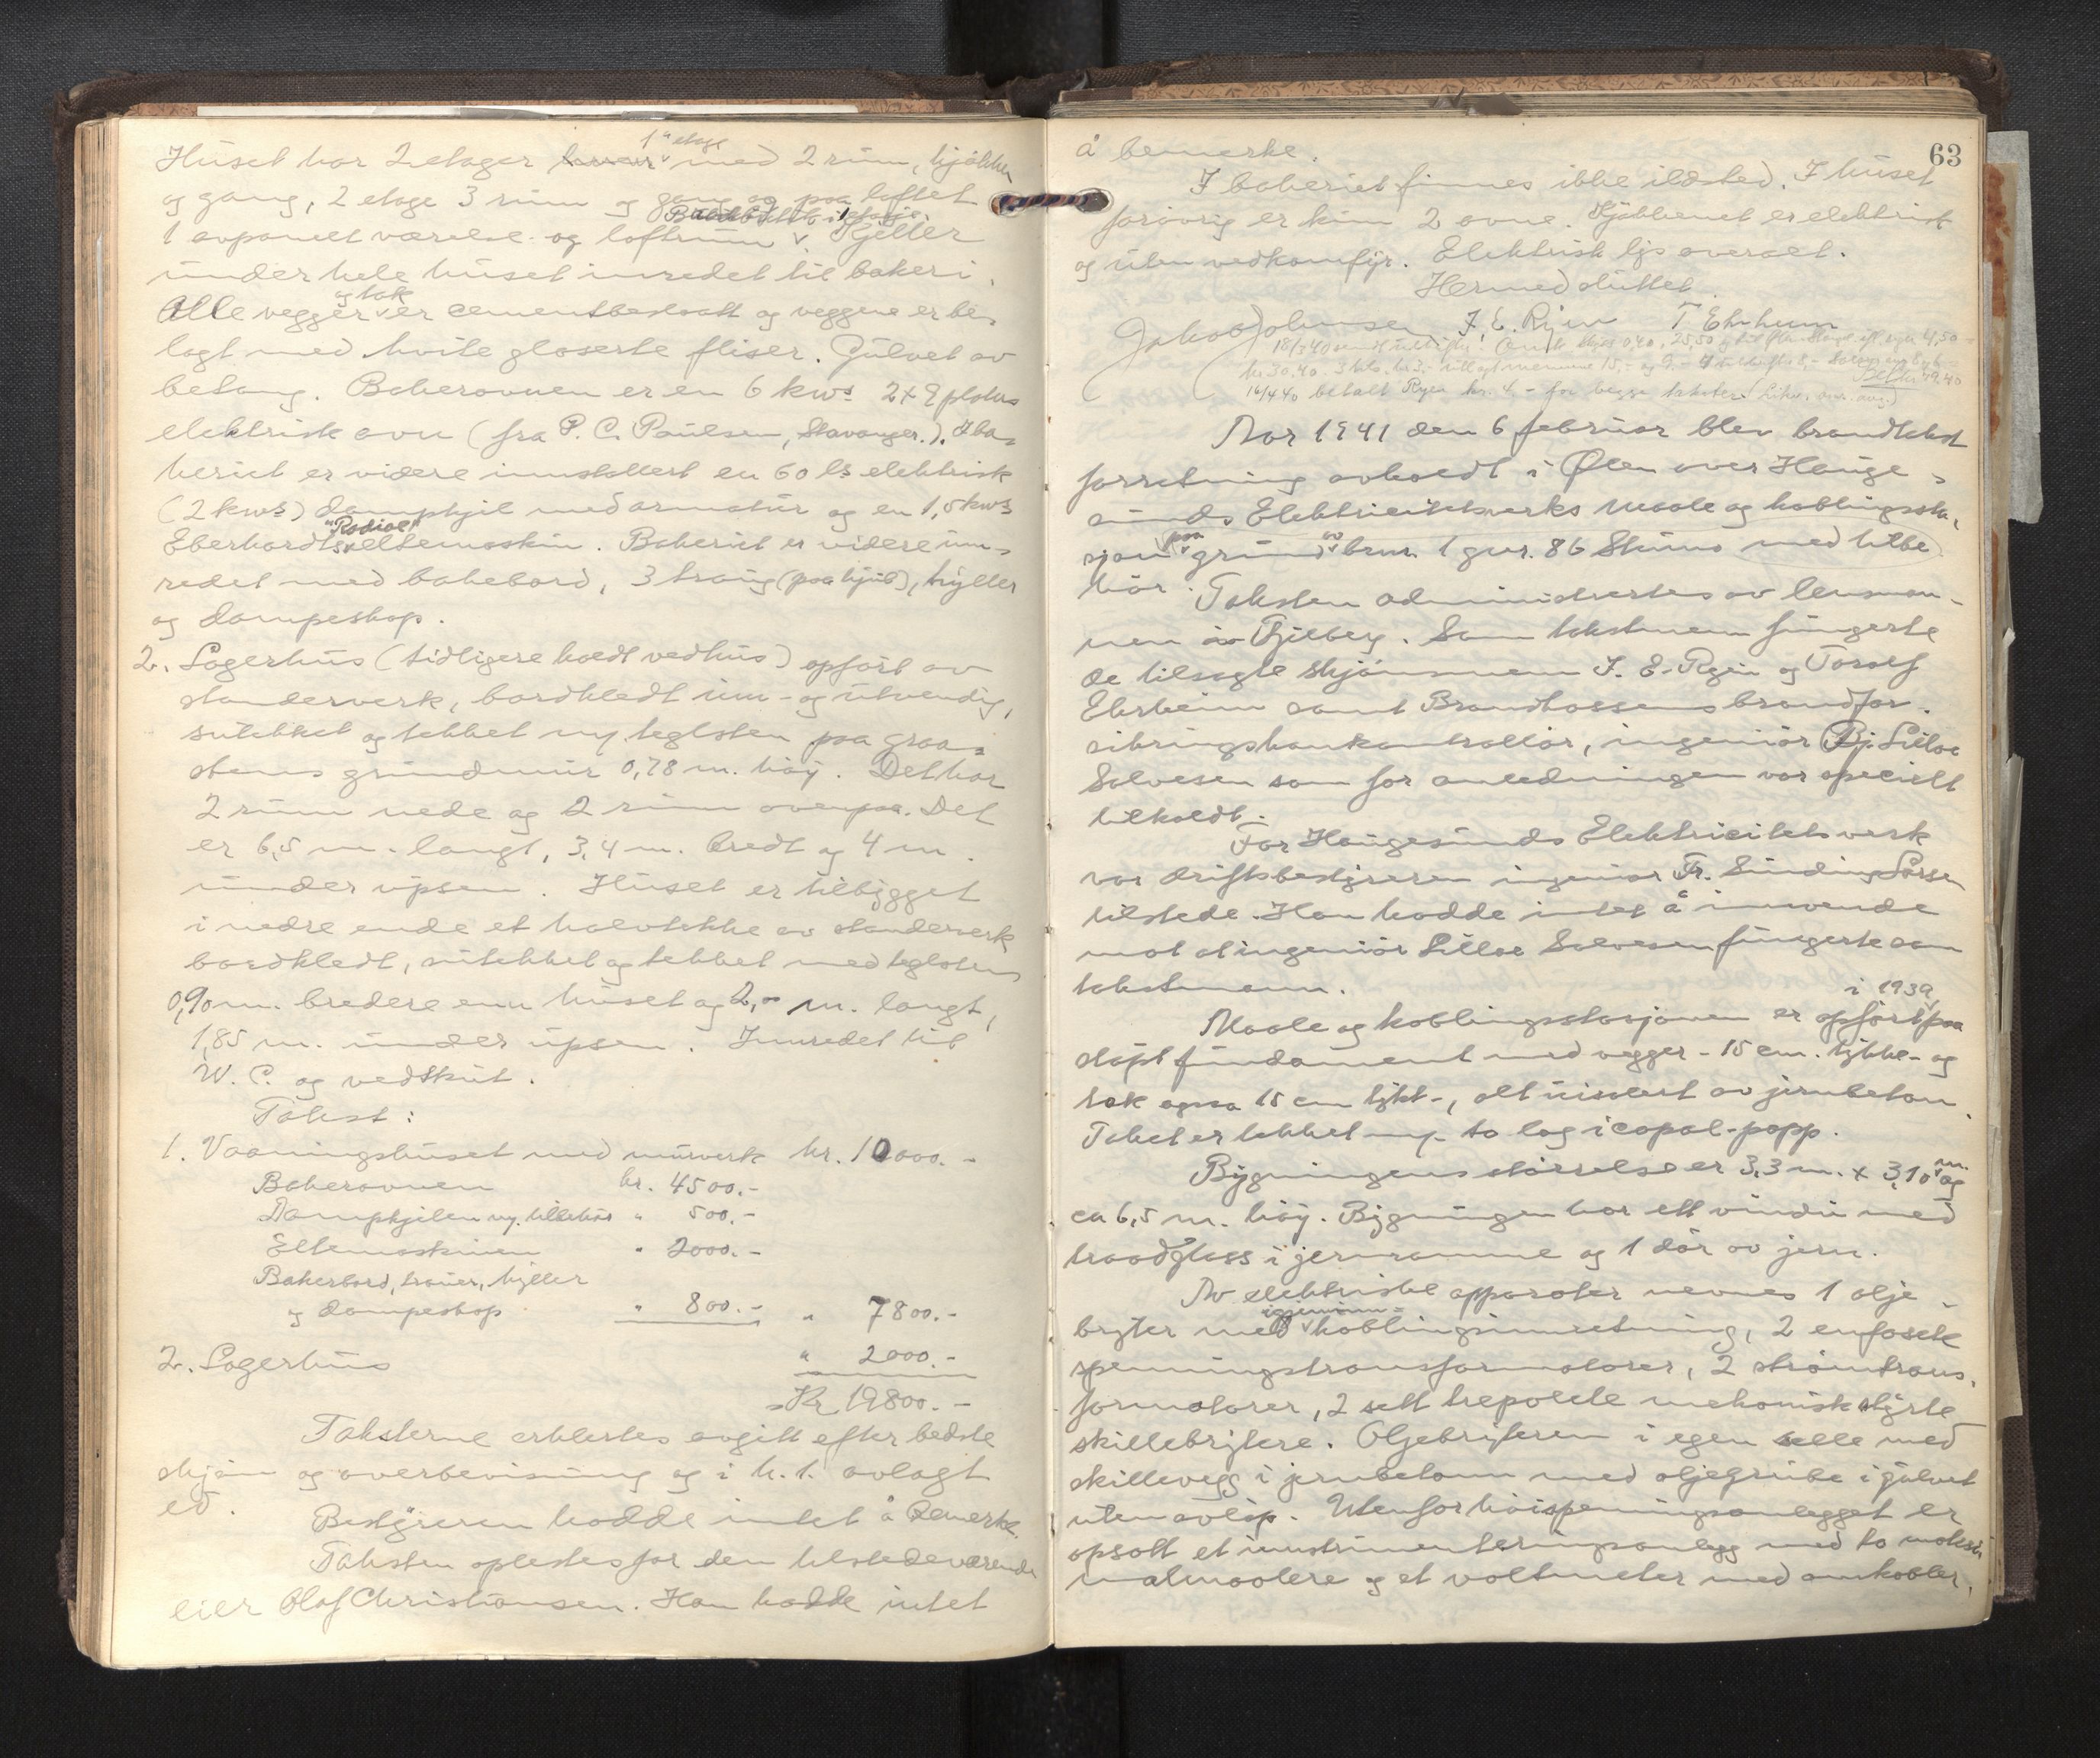 1ste etage
Huset har 2 etager med 2 rum, kjökken
og gang, 2 etage 3 rum og gang og paa loftet
1 avpanelt værelse og loftrum v. Kjeller
under hele huset inredet til bakeri.
og tak
Alle vegger v er cementbeslaatt og veggene er be-
lagt med hvite glaserte fliser. Gulvet av
betong. Bakerovnen er en 6 kws 2 x 9 platers
elektrisk ovn (fra P. C. Paulsen, Stavanger.). I ba-
keriet er videre innstallert en 60 ls elektrisk
(2 kws) dampkjel med armatur og en 1,5 kws
"Radial"
Eberhardts v eltemaskin. Bakeriet er videre inn-
redet med bakebord, 3 traug (paa hjul), hyller
og dampeskap.
2. Lagerhus (tidligere kaldt vedhus) opført av
standerverk, bordkledt inn- og utvendig,
sutekket og tekket m/ teglsten paa graa-
stens grundmur 0,78 m. høy. Det har
2 rum nede og 2 rum ovenpaa. Det
er 6,5 m. langt, 3,4 m. bredt og 4 m.
under upsen. Huset er tilbygget
i nedre ende et halvtekke av standerverk
bordkledt, sutekket og tekket med teglsten
0,90 m. bredere enn huset og 2,00 m. langt,
1,85 m. under upsen. Innredet til
W. C. og vedskut.
Takst:
1. Vaaningshuset med murverk kr. 10000.-
Bakerovnen kr. 4500.-
Dampkjelen m/ tilbehør " 500.-
Eltemaskinen " 2000.-
Bakerbord, trauer, hyller
og dampeskap " 800.- " 7800.-
2. Lagerhus " 2000.-
Kr 19800.-
Taksterne erklertes avgitt efter bedste
skjøn og overbevisning og i h. t. avlagt
ed.
Bestyreren hadde intet å bemerke.
Taksten oplestes for den tilstedeværende
eier Olaf Christiansen. Han hadde intet
63
å bemerke.
I bakeriet finnes ikke ildsted. I huset
forøvrig er kun 2 ovne. Kjøkkenet er elektrisk
og uten vedkomfyr. Elektrisk lys overalt.
Hermed sluttet.
Jakob Johnsen J. E. Ryen T Ehrheim
16/4 40 betalt Ryen kr. 4.- for begge takster
Aar 1941 den 6 februar blev brandtakst
forretning avholdt i Ølen over Hauge-
sunds Elektricitetsverks maale og koblingssta-
paa av
sjon v grund v brnr. 1 gnr. 86 Stuns med tilbe
hør. Taksten administrertes av lensman-
nen i Fjelberg. Som takstmenn fungerte
de tilsagte skjønsmenn J. E. Ryen og Toralf
Ehrheim samt Brandkassens brandfor-
sikringskontrollør, ingeniør Bj. Lilloe
Salvesen som for anledningen var specielt
tilkaldt.
For Haugesunds Elektricitetsverk
var driftsbestyreren ingeniør Fr. Sinding Larsen
tilstede. Han hadde intet å innvende
mot at ingeniør Lilloe Salvesen fungerte som
takstmann.
i 1939
Maale og koblingsstasjonen er opført v paa
støpt fundament med vegger - 15 cm. tykke - og
tak ogsaa 15 cm tykt -, alt uisolert av jernbeton.
Taket er tekket m/ to lag icopal-papp.
m.
Bygningens størrelse er 3,3 m. x 3,10 v og
ca 6,5 m. høy. Bygningen har ett vindu med
traadglass i jernramme og 1 dør av jern.
Av elektriske apparater nevnes 1 olje-
igjeninn-
bryter med v koblingsinnretning, 2 enfasete
spenningstransformatorer, 2 strømtrans-
formatorer, 2 sett trepolete mekanisk styrte
skillebrytere. Oljebryteren i egen celle med
skillevegg i jernbetonn med oljegrube i gulvet
uten avløp. Utenfor høispenningsanlegget er
opsatt et instrumenteringsanlegg med to maksi-
malmaalere og et voltmeter med omkobler,